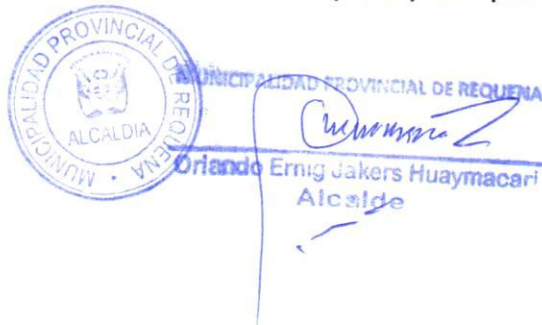 MUNICIPALIDAD PROVINCIAL DE REQUENA
ALCALDIA
MUNICIPALIDAD PROVINCIAL DE REQUENA
Orlando Ernig Jakers Huaymacari
Alcalde